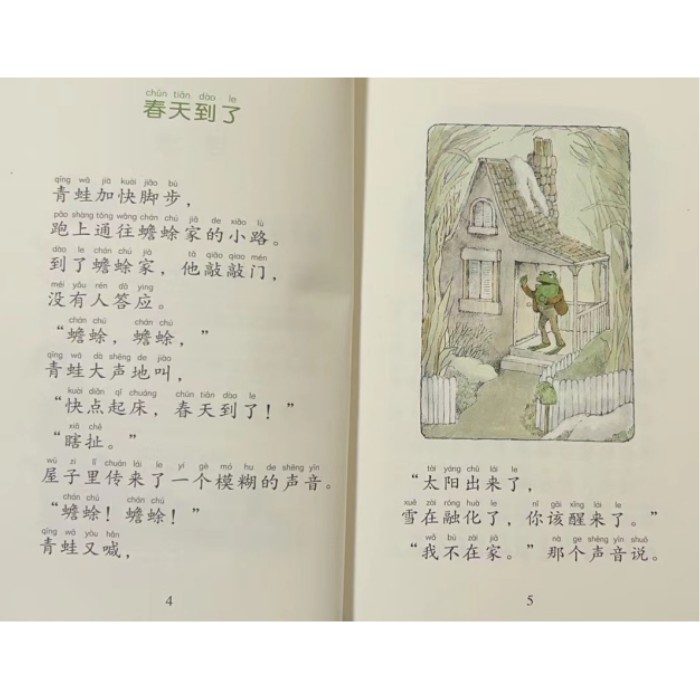 chūn tiān dào le
春天到了
qīng wā jiā kuài jiǎo bù
青蛙加快脚步，
pǎo shàng tōng wǎng chán chú jiā de xiǎo lù
跑上通往蟾蜍家的小路。
dào le chán chú jiā tā qiāo qiāo mén
到了蟾蜍家，他敲敲门，
méi yǒu rén dā yìng
没有人答应。
chán chú chán chú
“蟾蜍，蟾蜍，”
qīng wā dà shēng de jiào
青蛙大声地叫，
kuài diǎn qǐ chuáng chūn tiān dào le
“快点起床，春天到了！”
xiā chě
“瞎扯。”
wū zi lǐ chuán lái le yí gè mó hu de shēng yīn
屋子里传来了一个模糊的声音。
chán chú chán chú
“蟾蜍！蟾蜍！”
qīng wā yòu hǎn
青蛙又喊，
4
tài yáng chū lái le
“太阳出来了，
xuě zài róng huà le nǐ gāi xǐng lái le
雪在融化了，你该醒来了。”
wǒ bú zài jiā nà ge shēng yīn shuō
“我不在家。”那个声音说。
5